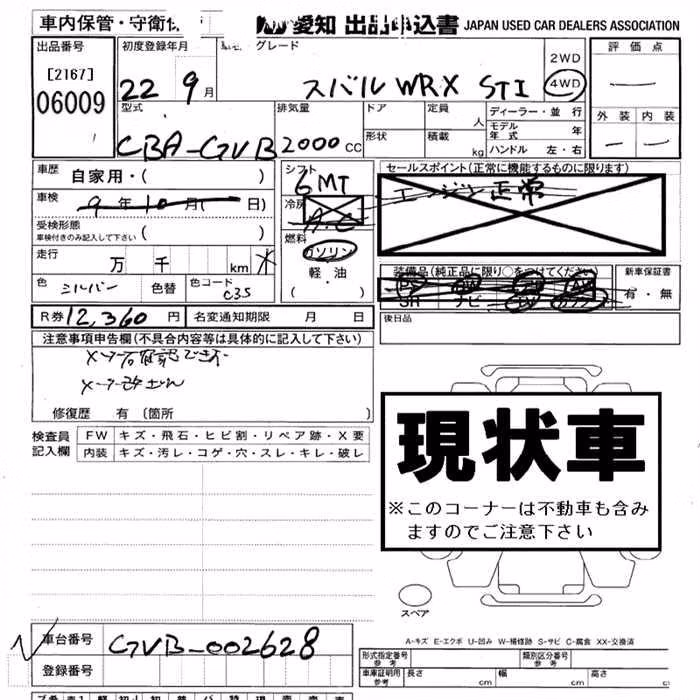 車内保管・守衛保管 愛知 出品申込書 JAPAN USED CAR DEALERS ASSOCIATION
出品番号 初度登録年月 グレード 2WD 評価点
[2167] 22 9月 スバル WRX STI 4WD
06009
型式 排気量 ドア 定員 ディーラー・並行 外装 内装
CBA-GVB 2000CC 人 モデル年式 年
形状 積載 kg ハンドル 左・右
車歴 自家用・( ) シフト セールスポイント(正常に機能するものに限ります)
6MT エンジン正常
車検 9年10月( 日) 冷房 A.C
受検形態
車検付きのみ記入して下さい ( ) 燃料 ガソリン
走行 万 千 km 軽・油 装備品(純正品に限り○をつけてください) 新車保証書
( ・ ) PS PW AW
SR ナビ TV 有・無
色 シルバー 色替 色コード C35
R券 12,360円 名変通知期限 月 日 後日品
注意事項申告欄(不具合内容等は具体的に記入して下さい)
メーター改ざん
修復歴 有〔箇所 〕
検査員記入欄 FW キズ・飛石・ヒビ割・リペア跡・X要
内装 キズ・汚レ・コゲ・穴・スレ・キレ・破レ
現状車
※このコーナーは不動車も含み
ますのでご注意下さい
スペア
車台番号 GVB-002628 A-キズ E-エクボ U-凹み W-補修跡 S-サビ C-腐食 XX-交換済
登録番号 形式指定番号 参考 類別区分番号 参考
車庫証明用 参考 長さ cm 幅 cm 高さ cm